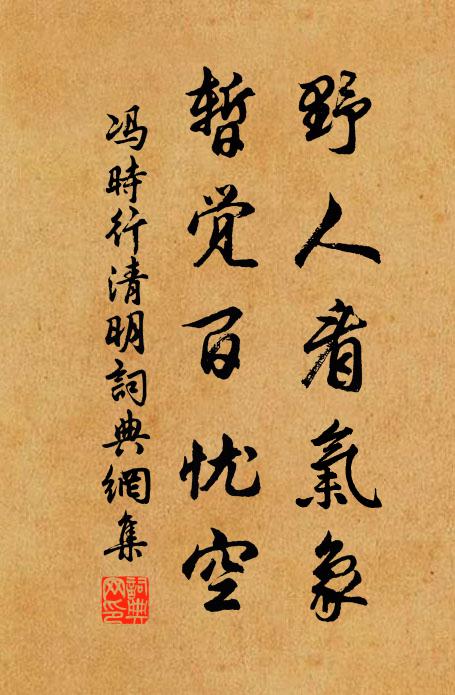 野人看氣象
暫觉百忧空
冯時行清明詞典網集
詞典
网印